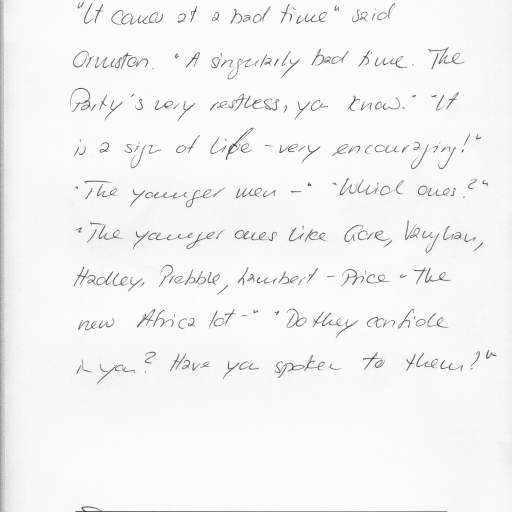 "It comes at a bad time" said
Ormston. "A singularly bad time. The
Party's very restless, you know." "It
is a sign of life - very encouraging!"
"The younger men -" "Which ones?"
"The younger ones like Gore, Vaughan,
Hadley, Prebble, Lambert - Price - The
new Africa lot -" "Do they confide
in you? Have you spoken to them?"